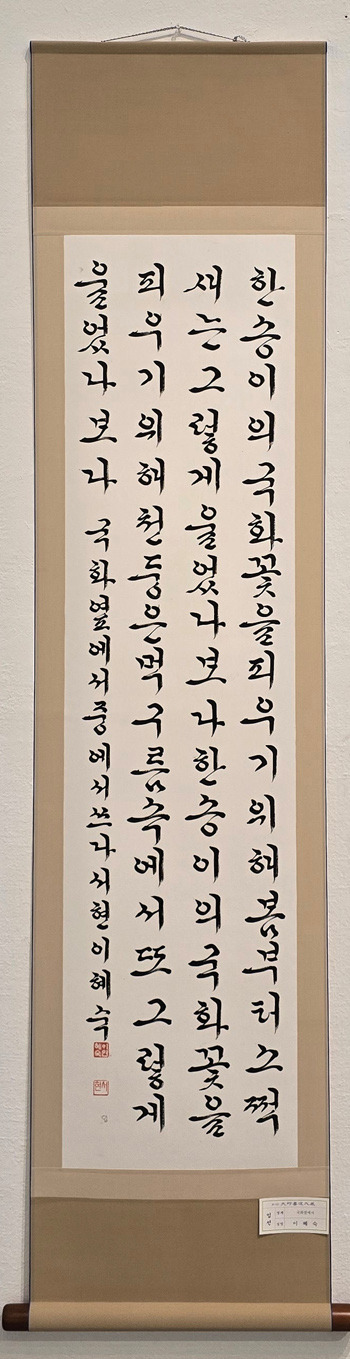 한송이의국화꽃을피우기위해봄부터소쩍
새는그렇게울었나보다한송이의국화꽃을
피우기위해천둥은먹구름속에서또그렇게
울었나보다 국화옆에서중에서쓰다서현이혜숙
입선
이혜숙